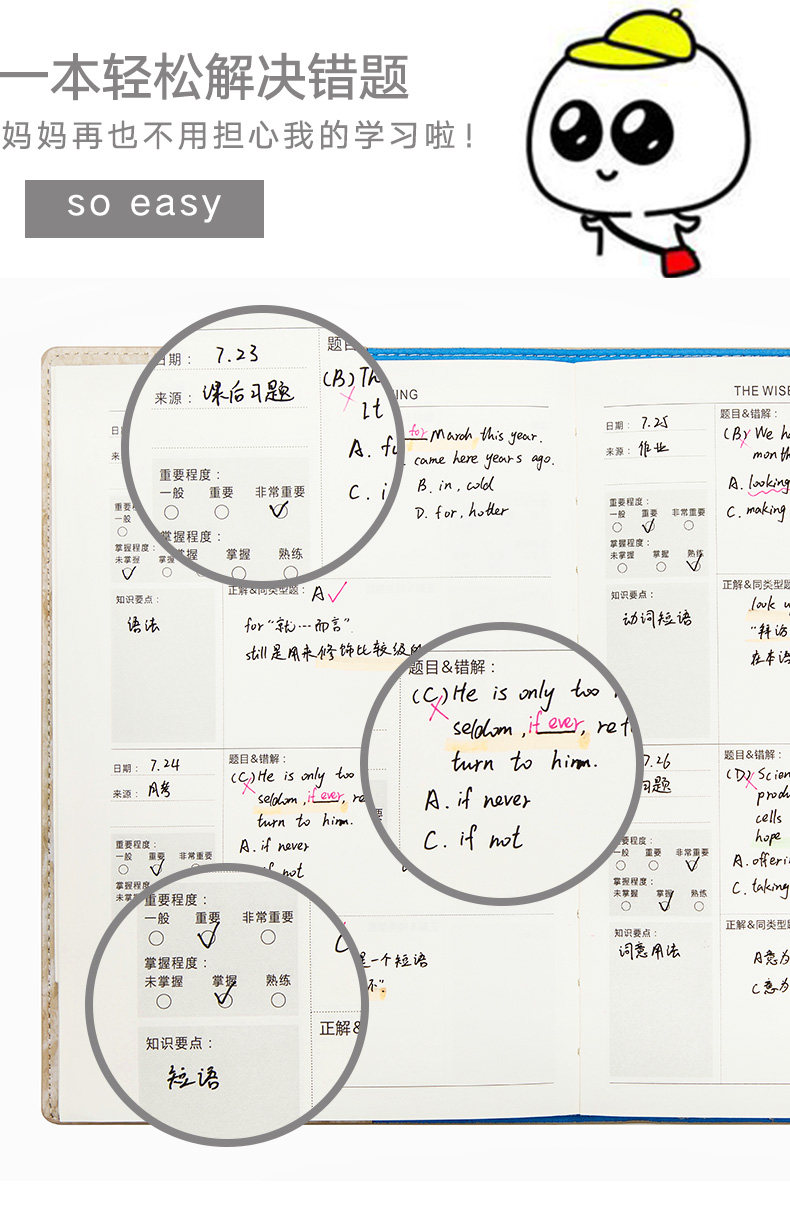 一本轻松解决错题
妈妈再也不用担心我的学习啦！
so easy
日期： 7.23
来源： 课后习题
重要程度：
一般 重要 非常重要
掌握程度：
掌握 熟练
题目
(B) Th
It
A. f
C. i
for March this year.
came here years ago.
B. in, cold
D. for, hotter
重要
一般
掌握程度：
未掌握
知识要点：
语法
正解&同类型题： A
for “就…而言”.
still是用来修饰比较级的
日期： 7.24
来源： 月考
重要程度：
一般 重要 非常重要
掌握程度：
题目&错解：
(C) He is only too
seldom, if ever, re
turn to him.
A. if never
if not
题目&错解：
(C) He is only too
seldom, if ever, ret
turn to him.
A. if never
C. if not
重要程度：
一般 重要 非常重要
掌握程度：
未掌握 掌握 熟练
知识要点：
短语
是一个短语
不”.
正解&
THE WISE
日期： 7.25
来源： 作业
重要程度：
一般 重要 非常重要
掌握程度：
未掌握 掌握 熟练
知识要点：
动词短语
题目&错解：
(B) We ha
month
A. looking
C. making
正解&同类型题
look u
“拜访
在本语
7.26
习题
重要程度：
一般 重要 非常重要
掌握程度：
未掌握 掌握 熟练
知识要点：
词意用法
题目&错解：
(D) Scien
produ
cells
hope
A. offerin
C. taking
正解&同类型题
A意为
C意为